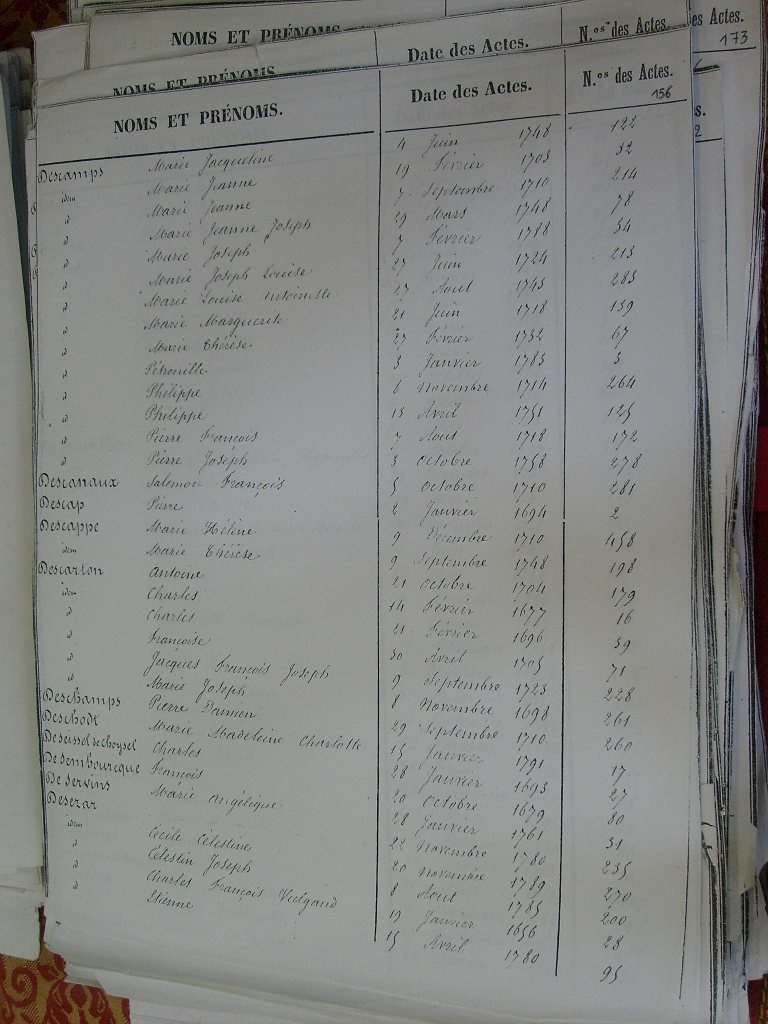 NOMS ET PRÉNOMS Date des Actes. N.os des Actes. es Actes. 173
NOMS ET PRÉNOMS
NOMS ET PRÉNOMS. Date des Actes. N.os des Actes. 156
Descamps Marie Jacqueline 4 Juin 1748 122
idem Marie Jeanne 19 Février 1703 32
d Marie Jeanne 7 Septembre 1710 214
d Marie Jeanne Joseph 29 Mars 1748 78
d Marie Joseph 7 Février 1788 34
d Marie Joseph Louise 27 Juin 1724 213
d Marie Louise Antoinette 27 Aout 1743 283
d Marie Marguerite 21 Juin 1718 139
d Marie Thérèse 27 Février 1732 67
d Pétronille 3 Janvier 1783 3
d Philippe 6 Novembre 1714 264
d Philippe 13 Avril 1751 125
d Pierre François 7 Aout 1718 172
d Pierre Joseph 3 Octobre 1758 278
Descanaux Salomon François 5 Octobre 1710 281
Descap Pierre 2 Janvier 1694 2
Descappe Marie Hélène 9 Décembre 1710 458
idem Marie Thérèse 9 Septembre 1748 198
Descarton Antoine 21 Octobre 1704 179
idem Charles 14 Février 1677 16
d Charles 21 Février 1696 39
d Françoise 30 Avril 1705 71
d Jacques François Joseph 9 Septembre 1723 228
d Marie Joseph 8 Novembre 1698 261
Deschamps Pierre Damien 29 Septembre 1710 260
Deschodt Marie Madeleine Charlotte 15 Janvier 1791 17
Deseissel de choysel Charles 28 Janvier 1693 27
Desembourcque François 20 Octobre 1679 80
De Servins Marie Angélique 28 Janvier 1761 31
Deserar Cécile Célestine 22 Novembre 1780 235
idem Célestin Joseph 20 novembre 1789 270
d Charles François 8 Aout 1785 200
d Etienne 19 Janvier 1656 28
d 15 Avril 1780 95